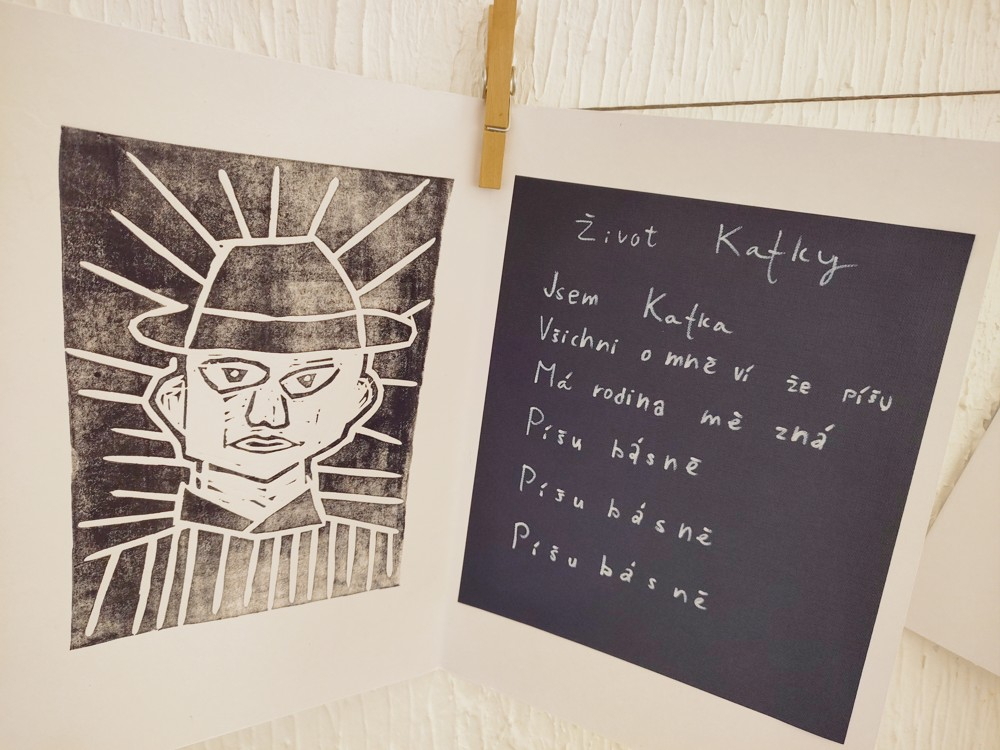 Život Kafky
Jsem Kafka
Všichni o mně ví že píšu
Má rodina mě zná
Píšu básně
Píšu básně
Píšu básně